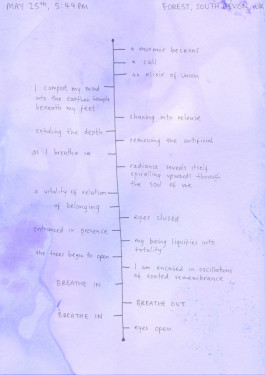 MAY 25TH, 5:49PM
FOREST, SOUTH DEVON, UK
a murmur beckons
a call
an elixir of union
I compost my mind
into the earthen temple
beneath my feet
chasing into release
exhaling the depth
removing the artificial
as I breathe in
radiance reveals itself
spiralling upwards through
the soul of me
a vitality of relation
of belonging
eyes closed
entranced in presence
my being liquifies into
totality
the trees begin to open
I am encased in oscillations
of exalted remembrance
BREATHE IN
BREATHE OUT
BREATHE IN
eyes open